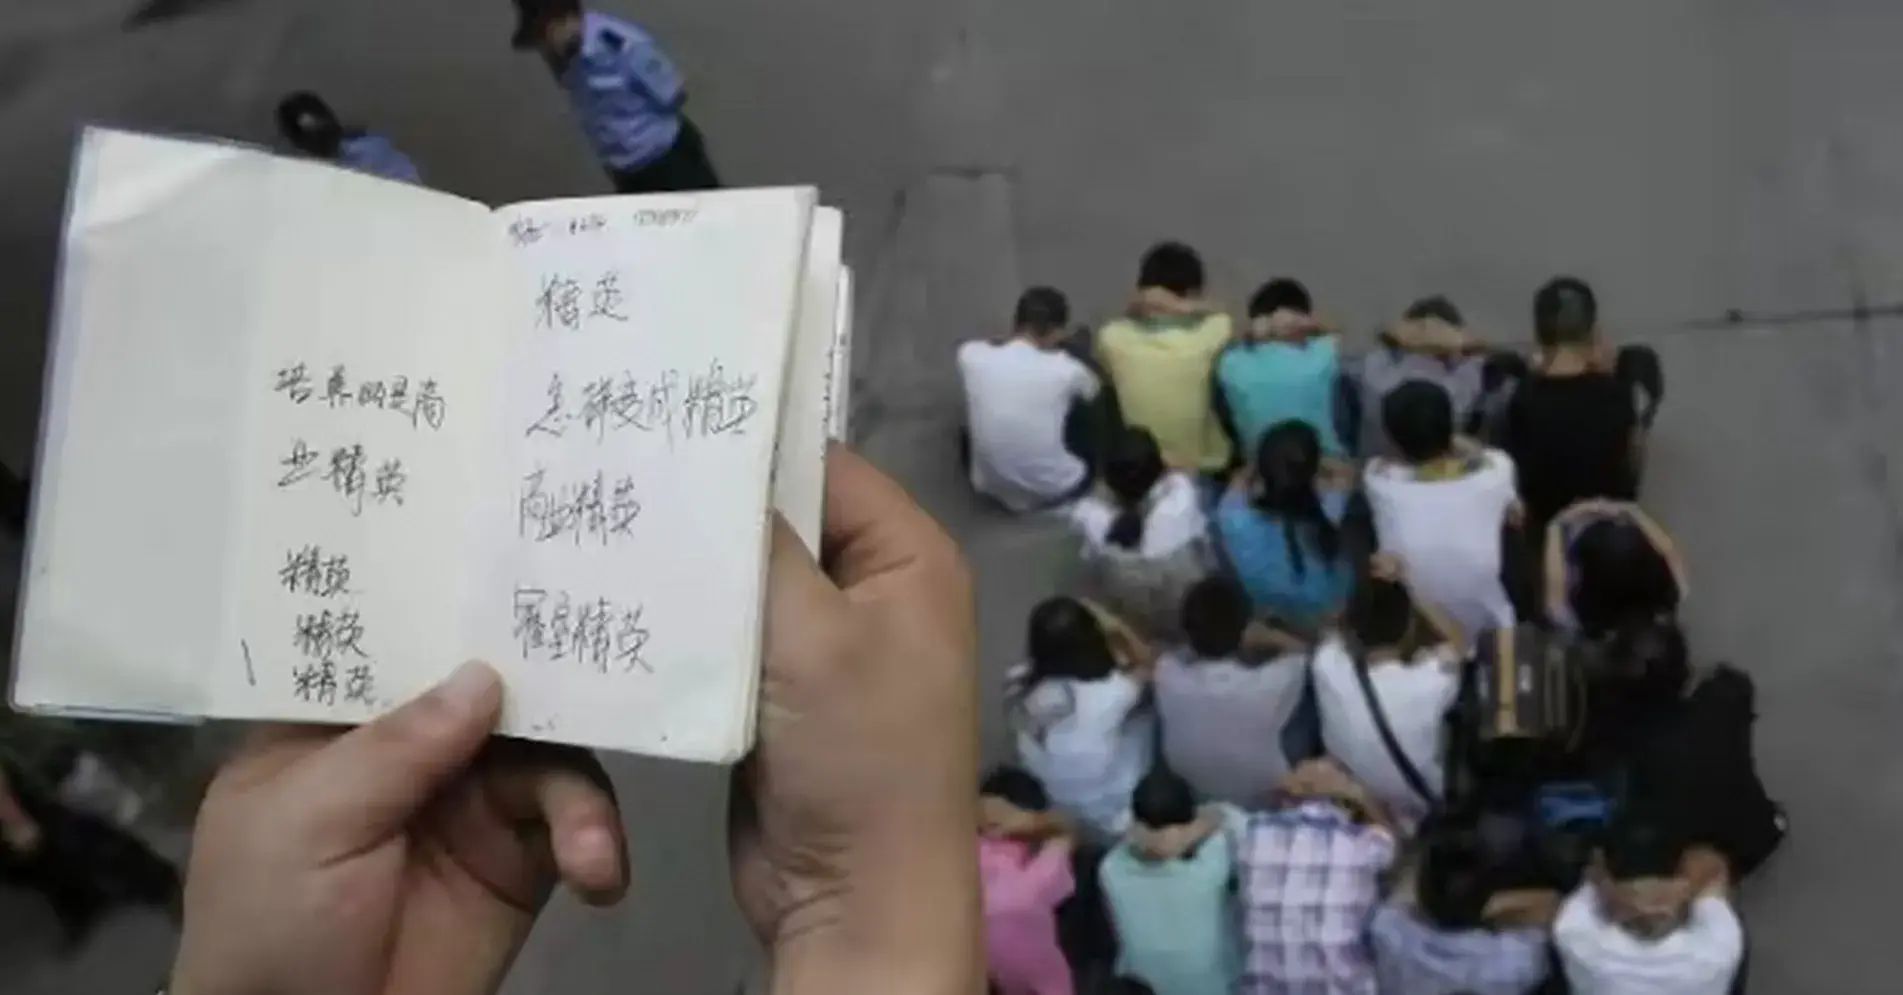 培养的是商
业精英
精英
精英
精英
精英
怎样变成精英
商业精英
精英